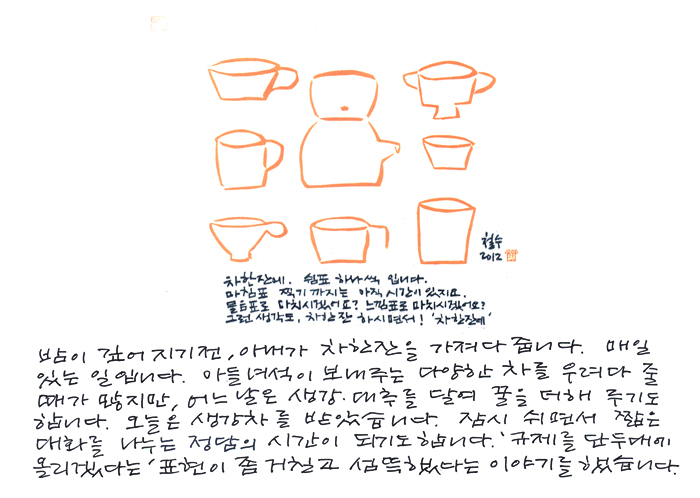 철수
2012
차한잔에. 쉼표 하나씩 입니다.
마침표 찍기 까지는 아직 시간이 있지요.
물음표로 마치시겠어요? 느낌표로 마치시겠어요?
그런 생각도, 차한잔 하시면서! '차한잔에'
밤이 깊어지기전, 아내가 차한잔을 가져다 줍니다. 매일
있는 일입니다. 아들녀석이 보내주는 다양한 차를 우려다 줄
때가 많지만, 어느 날은 생강·대추를 달여 꿀을 더해 주기도
합니다. 오늘은 생강차를 받았습니다. 잠시 쉬면서 짧은
대화를 나누는 정담의 시간이 되기도 합니다. '규제를 단두대에
올리겠다는' 표현이 좀 거칠고 섬뜩했다는 이야기를 했습니다.